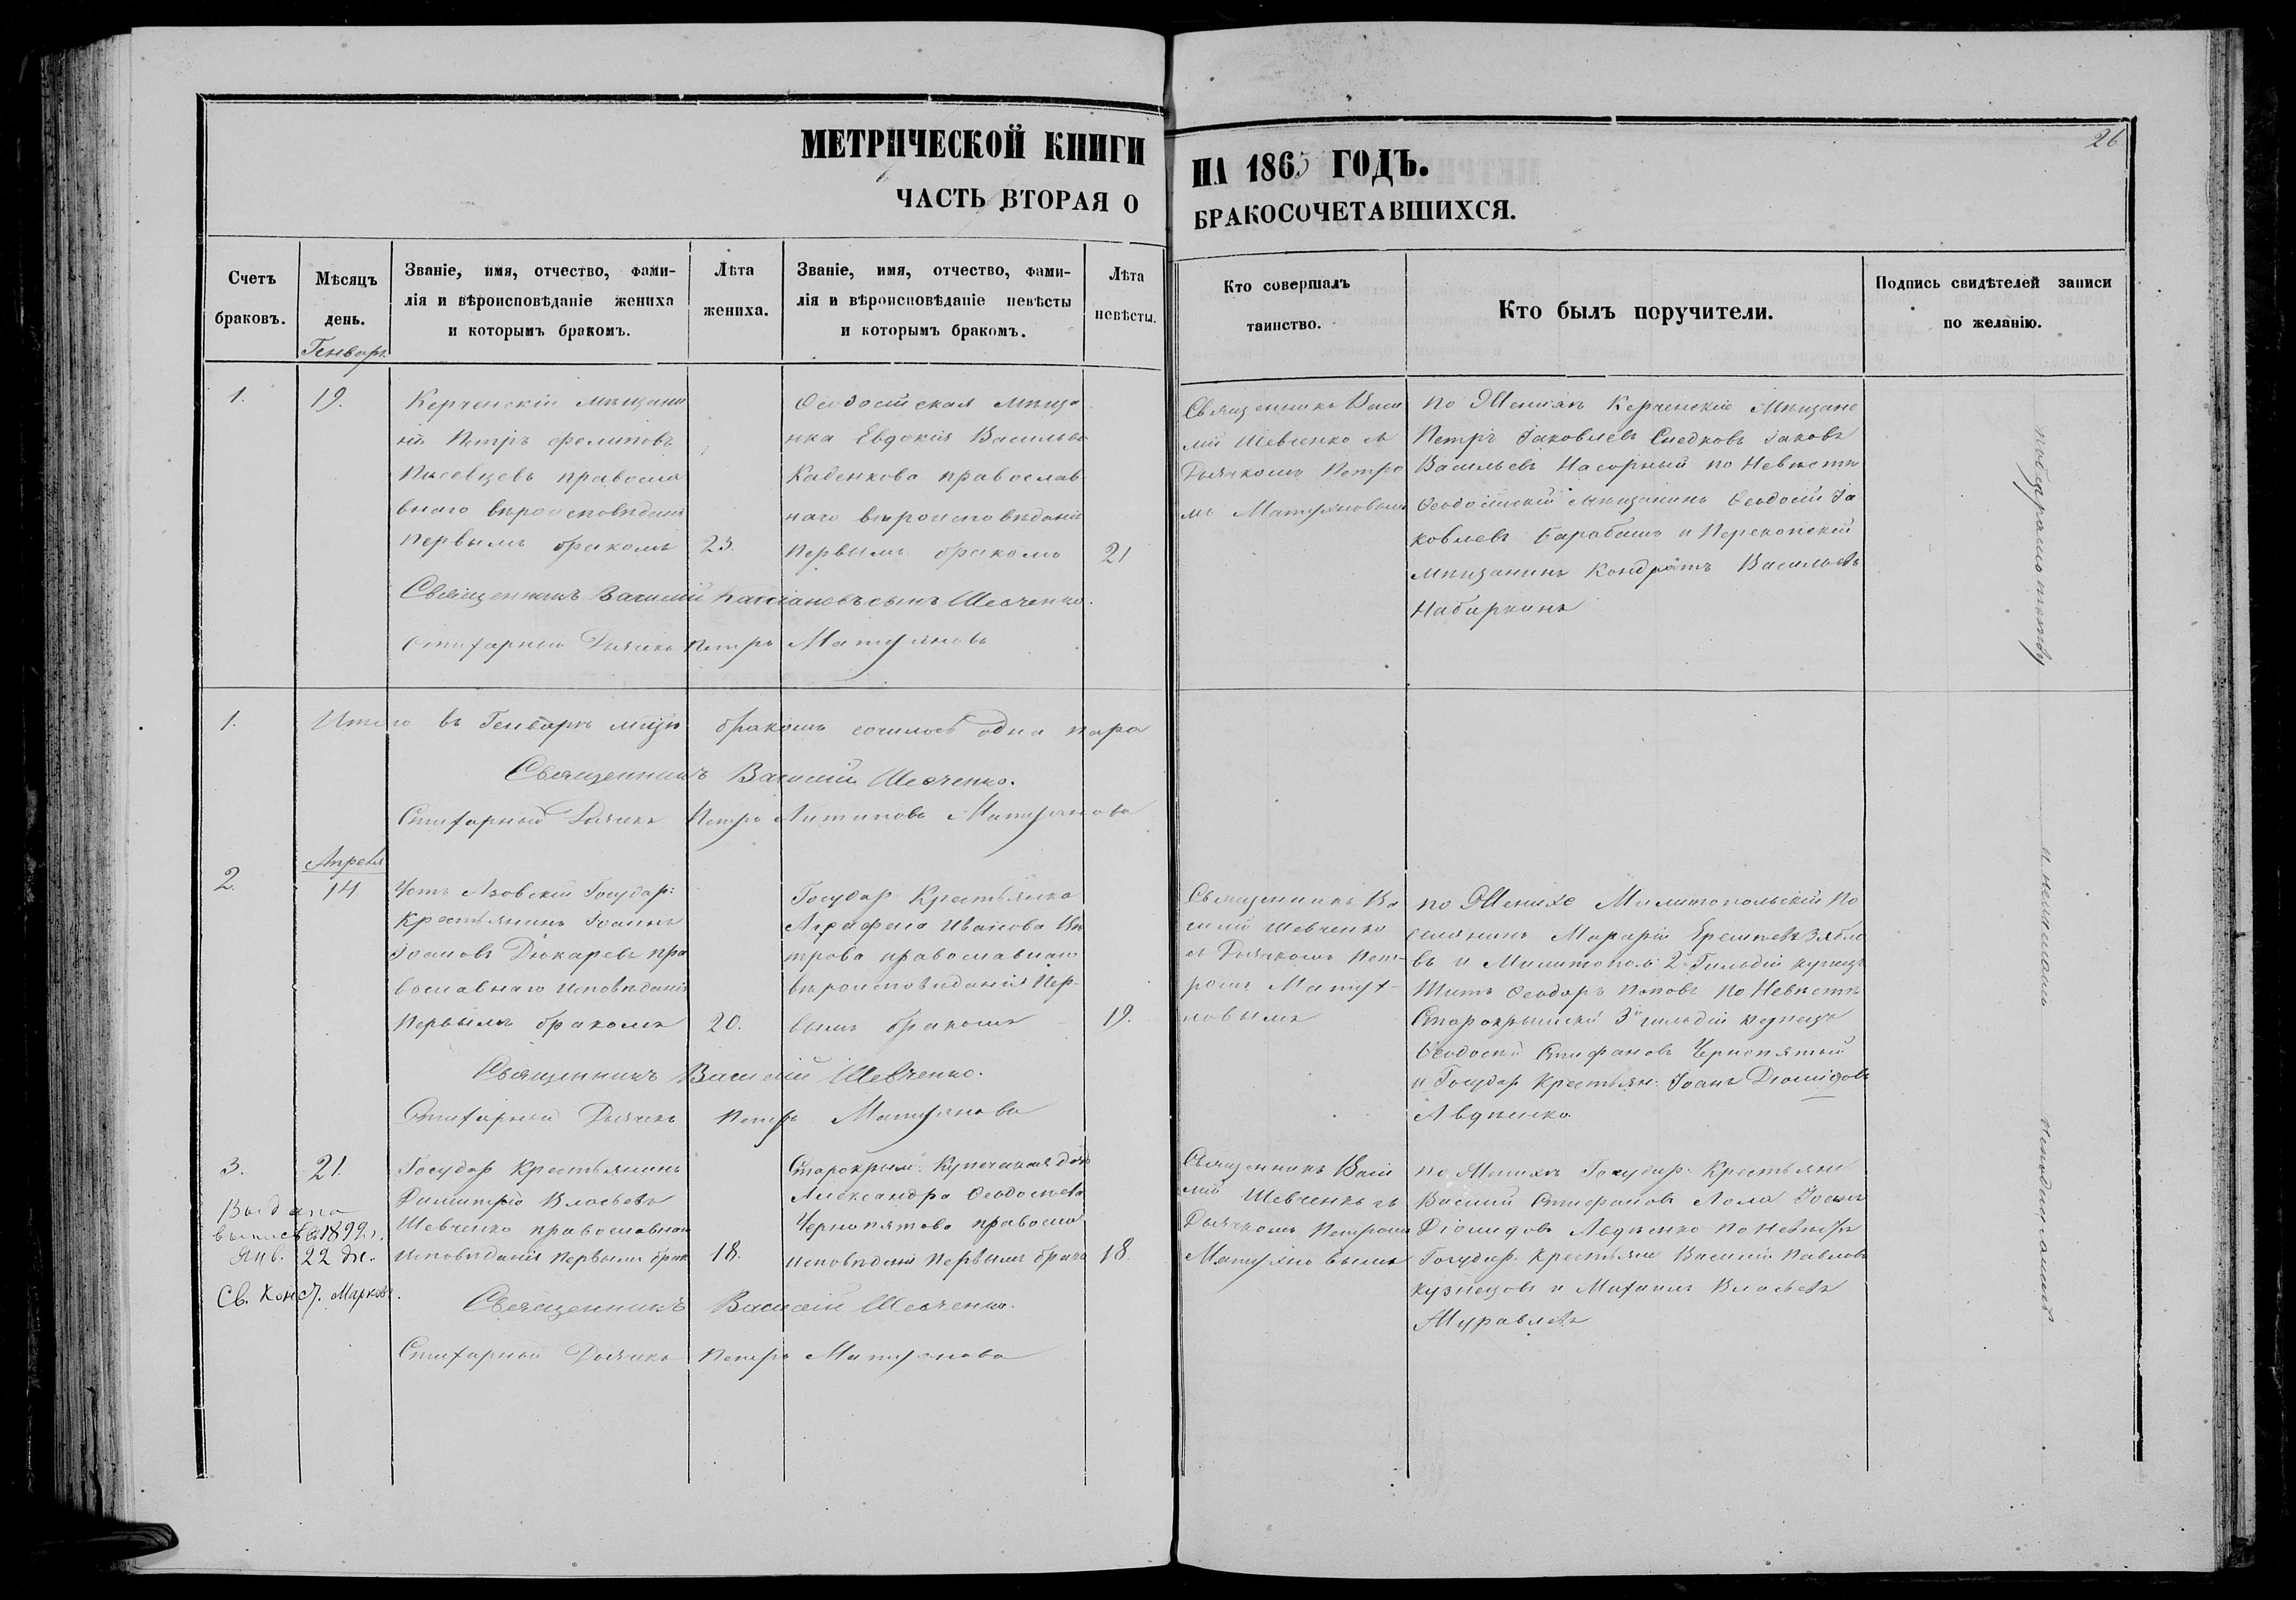 26
МЕТРИЧЕСКОЙ КНИГИ НА 1865 ГОДЪ.
ЧАСТЬ ВТОРАЯ О БРАКОСОЧЕТАВШИХСЯ.
Счетъ браковъ.
Мѣсяцъ день.
Званіе, имя, отчество, фами-
лія и вѣроисповѣданіе жениха
и которымъ бракомъ.
Лѣта жениха.
Званіе, имя, отчество, фами-
лія и вѣроисповѣданіе невѣсты
и которымъ бракомъ.
Лѣта невѣсты.
Кто совершалъ таинство.
Кто былъ поручители.
Подпись свидѣтелей записи
по желанію.
Генварь
1.
19.
Керченскій мѣщани
нъ Петръ Филиповъ
православ
внаго вѣроисповѣданія
первымъ бракомъ
23.
Ѳеодосійская мѣща
нка Евдокія Васильева
Каденкова православ
наго вѣроисповѣданія
первымъ бракомъ
21
Священникъ Васи
лій Шевченко съ
Дьячкомъ Петро
мъ Матухновымъ
по Женихѣ Керченскіе Мѣщане
Петръ Іаковлевъ Іаковъ
Васильевъ Нагорный по Невѣстѣ
Ѳеодосійскій мѣщанинъ Ѳеодосій Іа
ковлевъ Барабашъ и Перекопскій
мѣщанинъ Кондратъ Васильевъ
Набиркинъ
Священникъ Василій Кассіановъ сынъ Шевченко.
Стихарный Дьячекъ Петръ Матухновъ
1.
Итого въ Генварѣ мцѣ бракомъ сочилось одна пара
Священникъ Василій Шевченко.
Стихарный Дьячекъ Петръ Антиповъ Матухновъ
Апрель
2.
14.
Усть Азовскій Государ:
Крестьянинъ Іоаннъ
Іоановъ Дюкаревъ пра
вославнаго исповѣданія
первымъ бракомъ
20.
Государ Крестьянка
Агрефена Иванова Пе
трова православнаго
вѣроисповѣданія пер-
вымъ бракомъ
19.
Священникъ Ва
силій Шевченко
съ Дьячкомъ Пет-
ромъ Матух-
новымъ
по Женихе Милитопольскій по
селянинъ Макарій Ереміевъ Зябле
въ и Милитопол: 2й Гильдіи купецъ
Титъ Ѳеодоръ Поповъ по Невѣстѣ
Старокрымскій 3й гильдіи купецъ
Ѳеодосій Стифановъ Чернопятый
и Государ Крестьян: Іоанъ Діомидовъ
Авдѣенко
Священникъ Василій Шевченко.
Стихарный Дьячекъ Петръ Матухновъ
3.
21.
Государ Крестьянинъ
Димитрій Власьевъ
Шевченко православнаго
исповѣданія первымъ брак
18.
Старокрым: Купеческая дочь
Александра Ѳеодосіева
Чернопятова правосла
исповѣданія первымъ брако
18.
Священникъ Васи
лій Шевченко съ
Дьячкомъ Петромъ
Матухновымъ
по Женихѣ Государ: Крестьяни
Василій Стифановъ Лола Іоанъ
Діомидовъ Авдѣенко по Невѣстѣ
Государ. Крестьяни Василій Павловъ
Кузнецовъ и Михаилъ Власьевъ
Журавлевъ
Выдана
выпись 1899 г.
Янв. 22 дн.
Св. Конст. Марковъ.
Священникъ Василій Шевченко.
Стихарный Дьячекъ Петръ Матухновъ